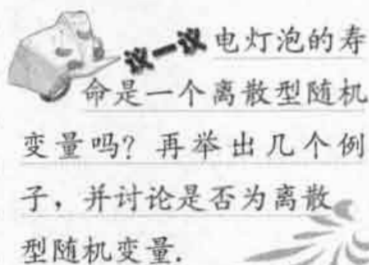 议一议 电灯泡的寿
命是一个离散型随机
变量吗？再举出几个例
子，并讨论是否为离散
型随机变量．